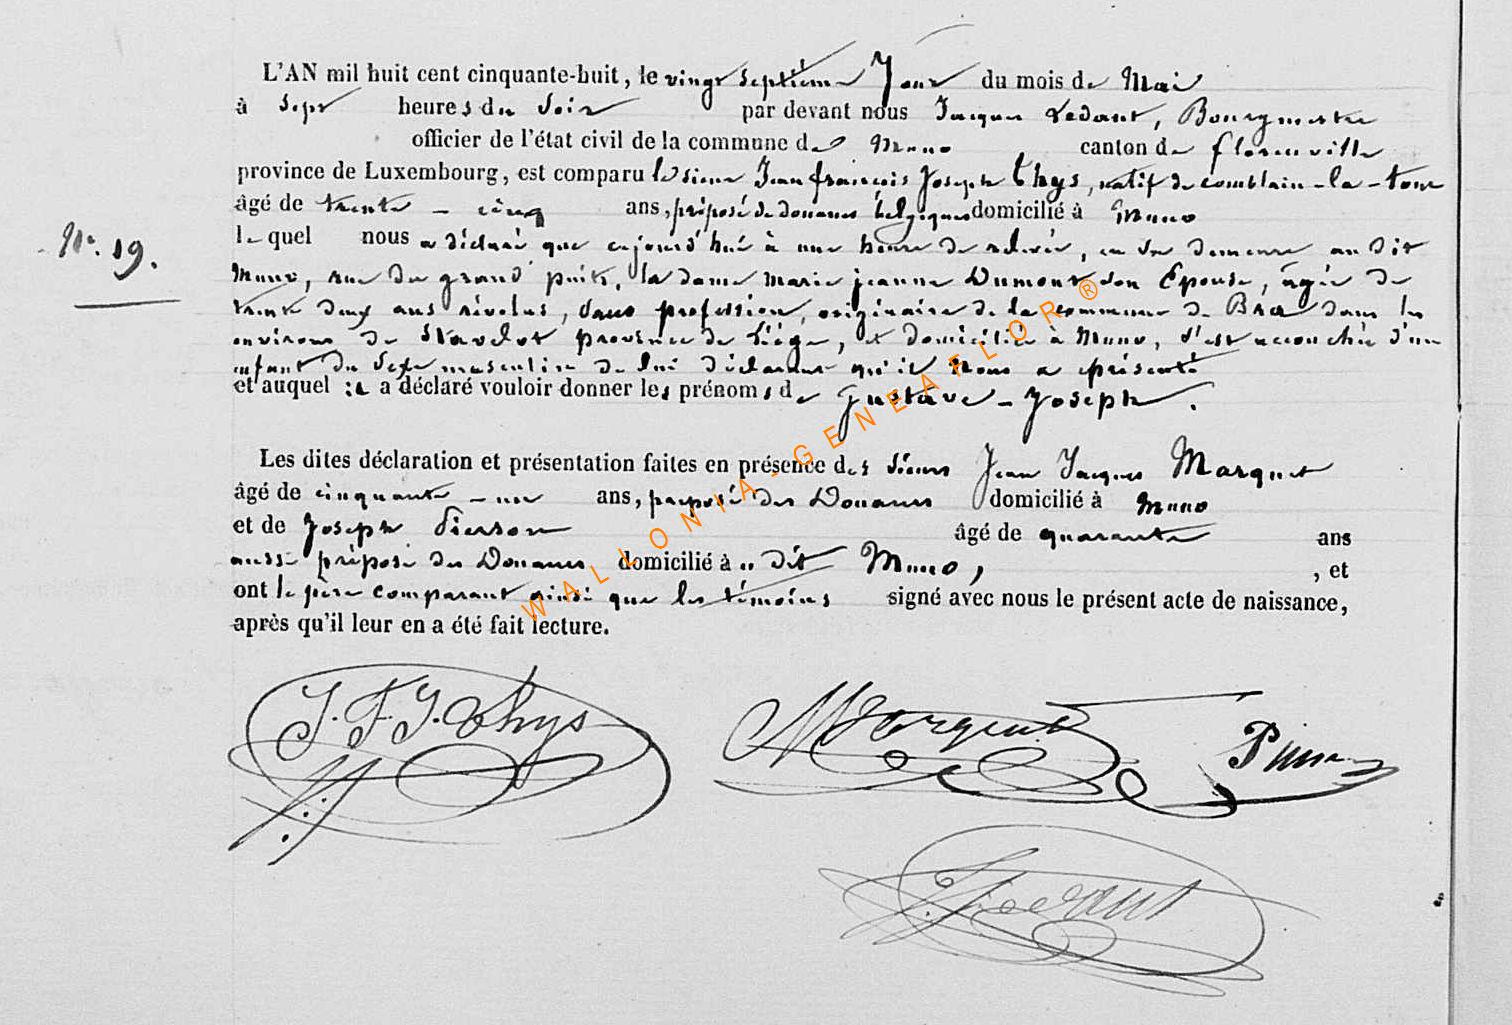 L'AN mil huit cent cinquante-huit, le vingt septième Jour du mois de Mai
à Sept heures du Soir par devant nous Jacques Ledant, Bourgmestre
officier de l'état civil de la commune de Muno canton de florenville
province de Luxembourg, est comparu le sieur Jean françois Joseph Thys, natif de comblain-la-tour
âgé de trente-cinq ans, préposé de douanes belgiques domicilié à Muno
le quel nous a déclaré que cejourd'hui à une heure de relevée, en sa demeure au dit
N° 19.
Muno, rue du grand puits, la dame Marie jeanne Dumont son Epouse, âgée de
trente deux ans révolus, sans profession, originaire de la commune de Bra dans les
environs de Stavelot province de Liége, et domiciliée à Muno, s'est accouchée d'un
enfant du sexe masculin de lui déclarant qu'il nous a présenté
et auquel il a déclaré vouloir donner les prénoms de Gustave-Joseph.
Les dites déclaration et présentation faites en présence des sieurs Jean Jacques Marquet
âgé de cinquante-un ans, préposé des Douanes domicilié à Muno
et de Joseph Pierson âgé de quarante ans
aussi préposé des Douanes domicilié à u dit Muno, , et
ont le père comparant ainsi que les témoins signé avec nous le présent acte de naissance,
après qu'il leur en a été fait lecture.
J. F. J. Thys Marquet
J. Ledant
WALLONIA-GENEAFLOR®